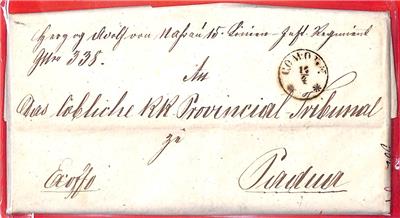 Herzog Adolf von Nassau 15. Linien-Inft. Regiment
Nro 338.
COMORN
12
4
An
Das löbliche KK Provincial Tribunal
zu
Exoffo
Padua